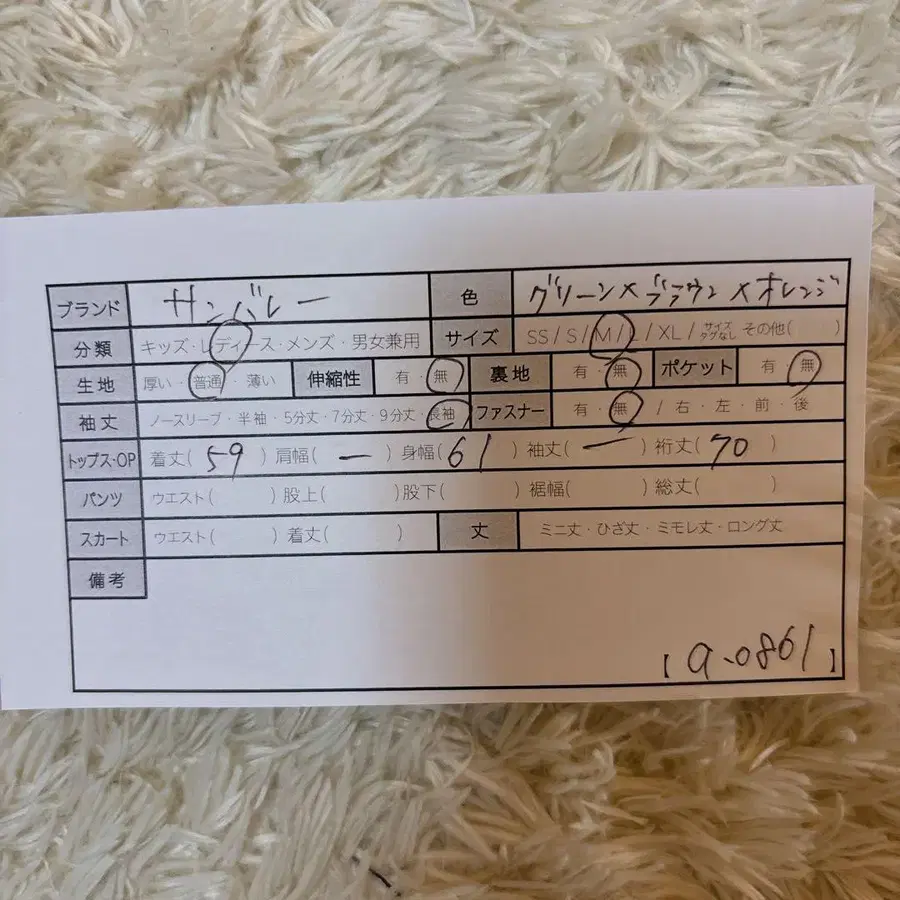 ブランド サンバレー 色 グリーン×ブラウン×オレンジ
分類 キッズ・レディース・メンズ・男女兼用 サイズ SS / S / M / L / XL / サイズタグなし その他( )
生地 厚い・普通・薄い 伸縮性 有・無 裏地 有・無 ポケット 有・無
袖丈 ノースリーブ・半袖・5分丈・7分丈・9分丈・長袖 ファスナー 有・無 / 右・左・前・後
トップス・OP 着丈( 59 ) 肩幅( ー ) 身幅( 61 ) 袖丈( ー ) 裄丈( 70 )
パンツ ウエスト( ) 股上( ) 股下( ) 裾幅( ) 総丈( )
スカート ウエスト( ) 着丈( ) 丈 ミニ丈・ひざ丈・ミモレ丈・ロング丈
備考
【 a-0861 】